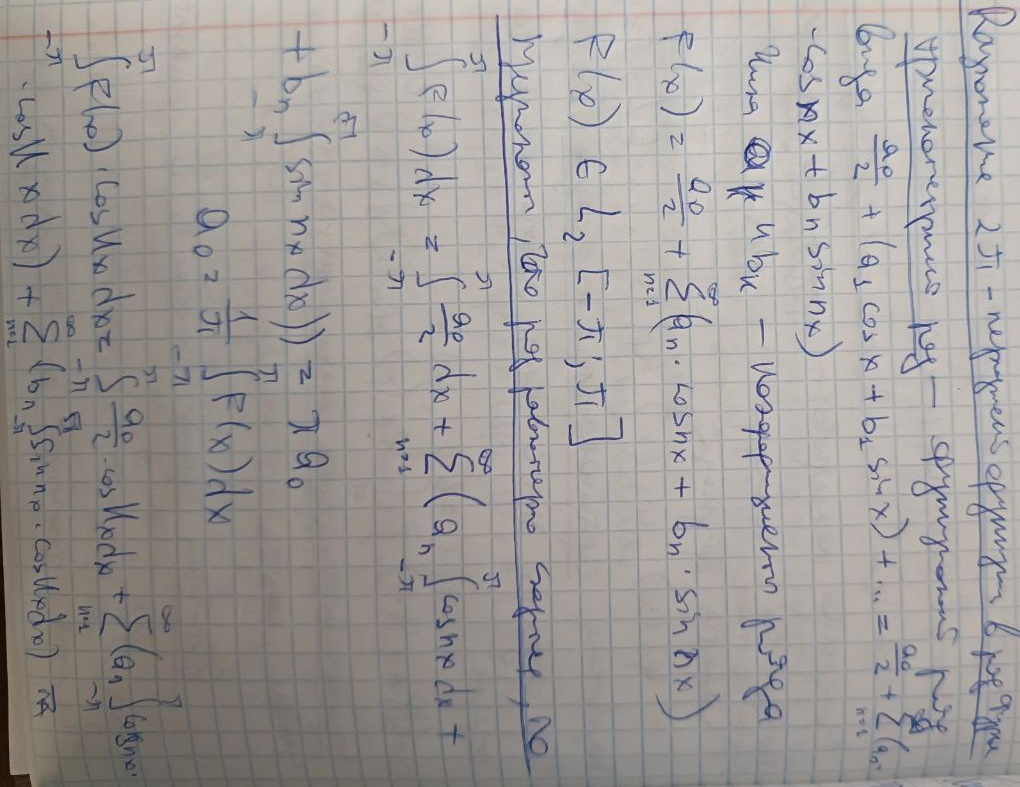 Разложение 2π-периодической функции в ряд Фурье
Тригонометрический ряд — функциональный ряд
вида a₀/2 + (a₁ cos x + b₁ sin x) + ... = a₀/2 + ∑_{n=1}^{∞} (aₙ·
·cos nx + bₙ sin nx)
Числа aₖ и bₖ — коэффициенты ряда
F(x) = a₀/2 + ∑_{n=1}^{∞} (aₙ · cos nx + bₙ · sin nx)
F(x) ∈ L₂ [-π; π]
ряд равномерно
∫_{-π}^{π} F(x) dx = ∫_{-π}^{π} a₀/2 dx + ∑_{n=1}^{∞} (aₙ ∫_{-π}^{π} cos nx dx +
+ bₙ ∫_{-π}^{π} sin nx dx)) = π a₀
a₀ = 1/π ∫_{-π}^{π} F(x) dx
∫_{-π}^{π} F(x) · cos Nx dx = ∫_{-π}^{π} a₀/2 cos · Nx dx + ∑_{n=1}^{∞} (aₙ ∫_{-π}^{π} cos nx ·
· cos Nx dx) + ∑_{n=1}^{∞} (bₙ ∫_{-π}^{π} sin nx · cos Nx dx)